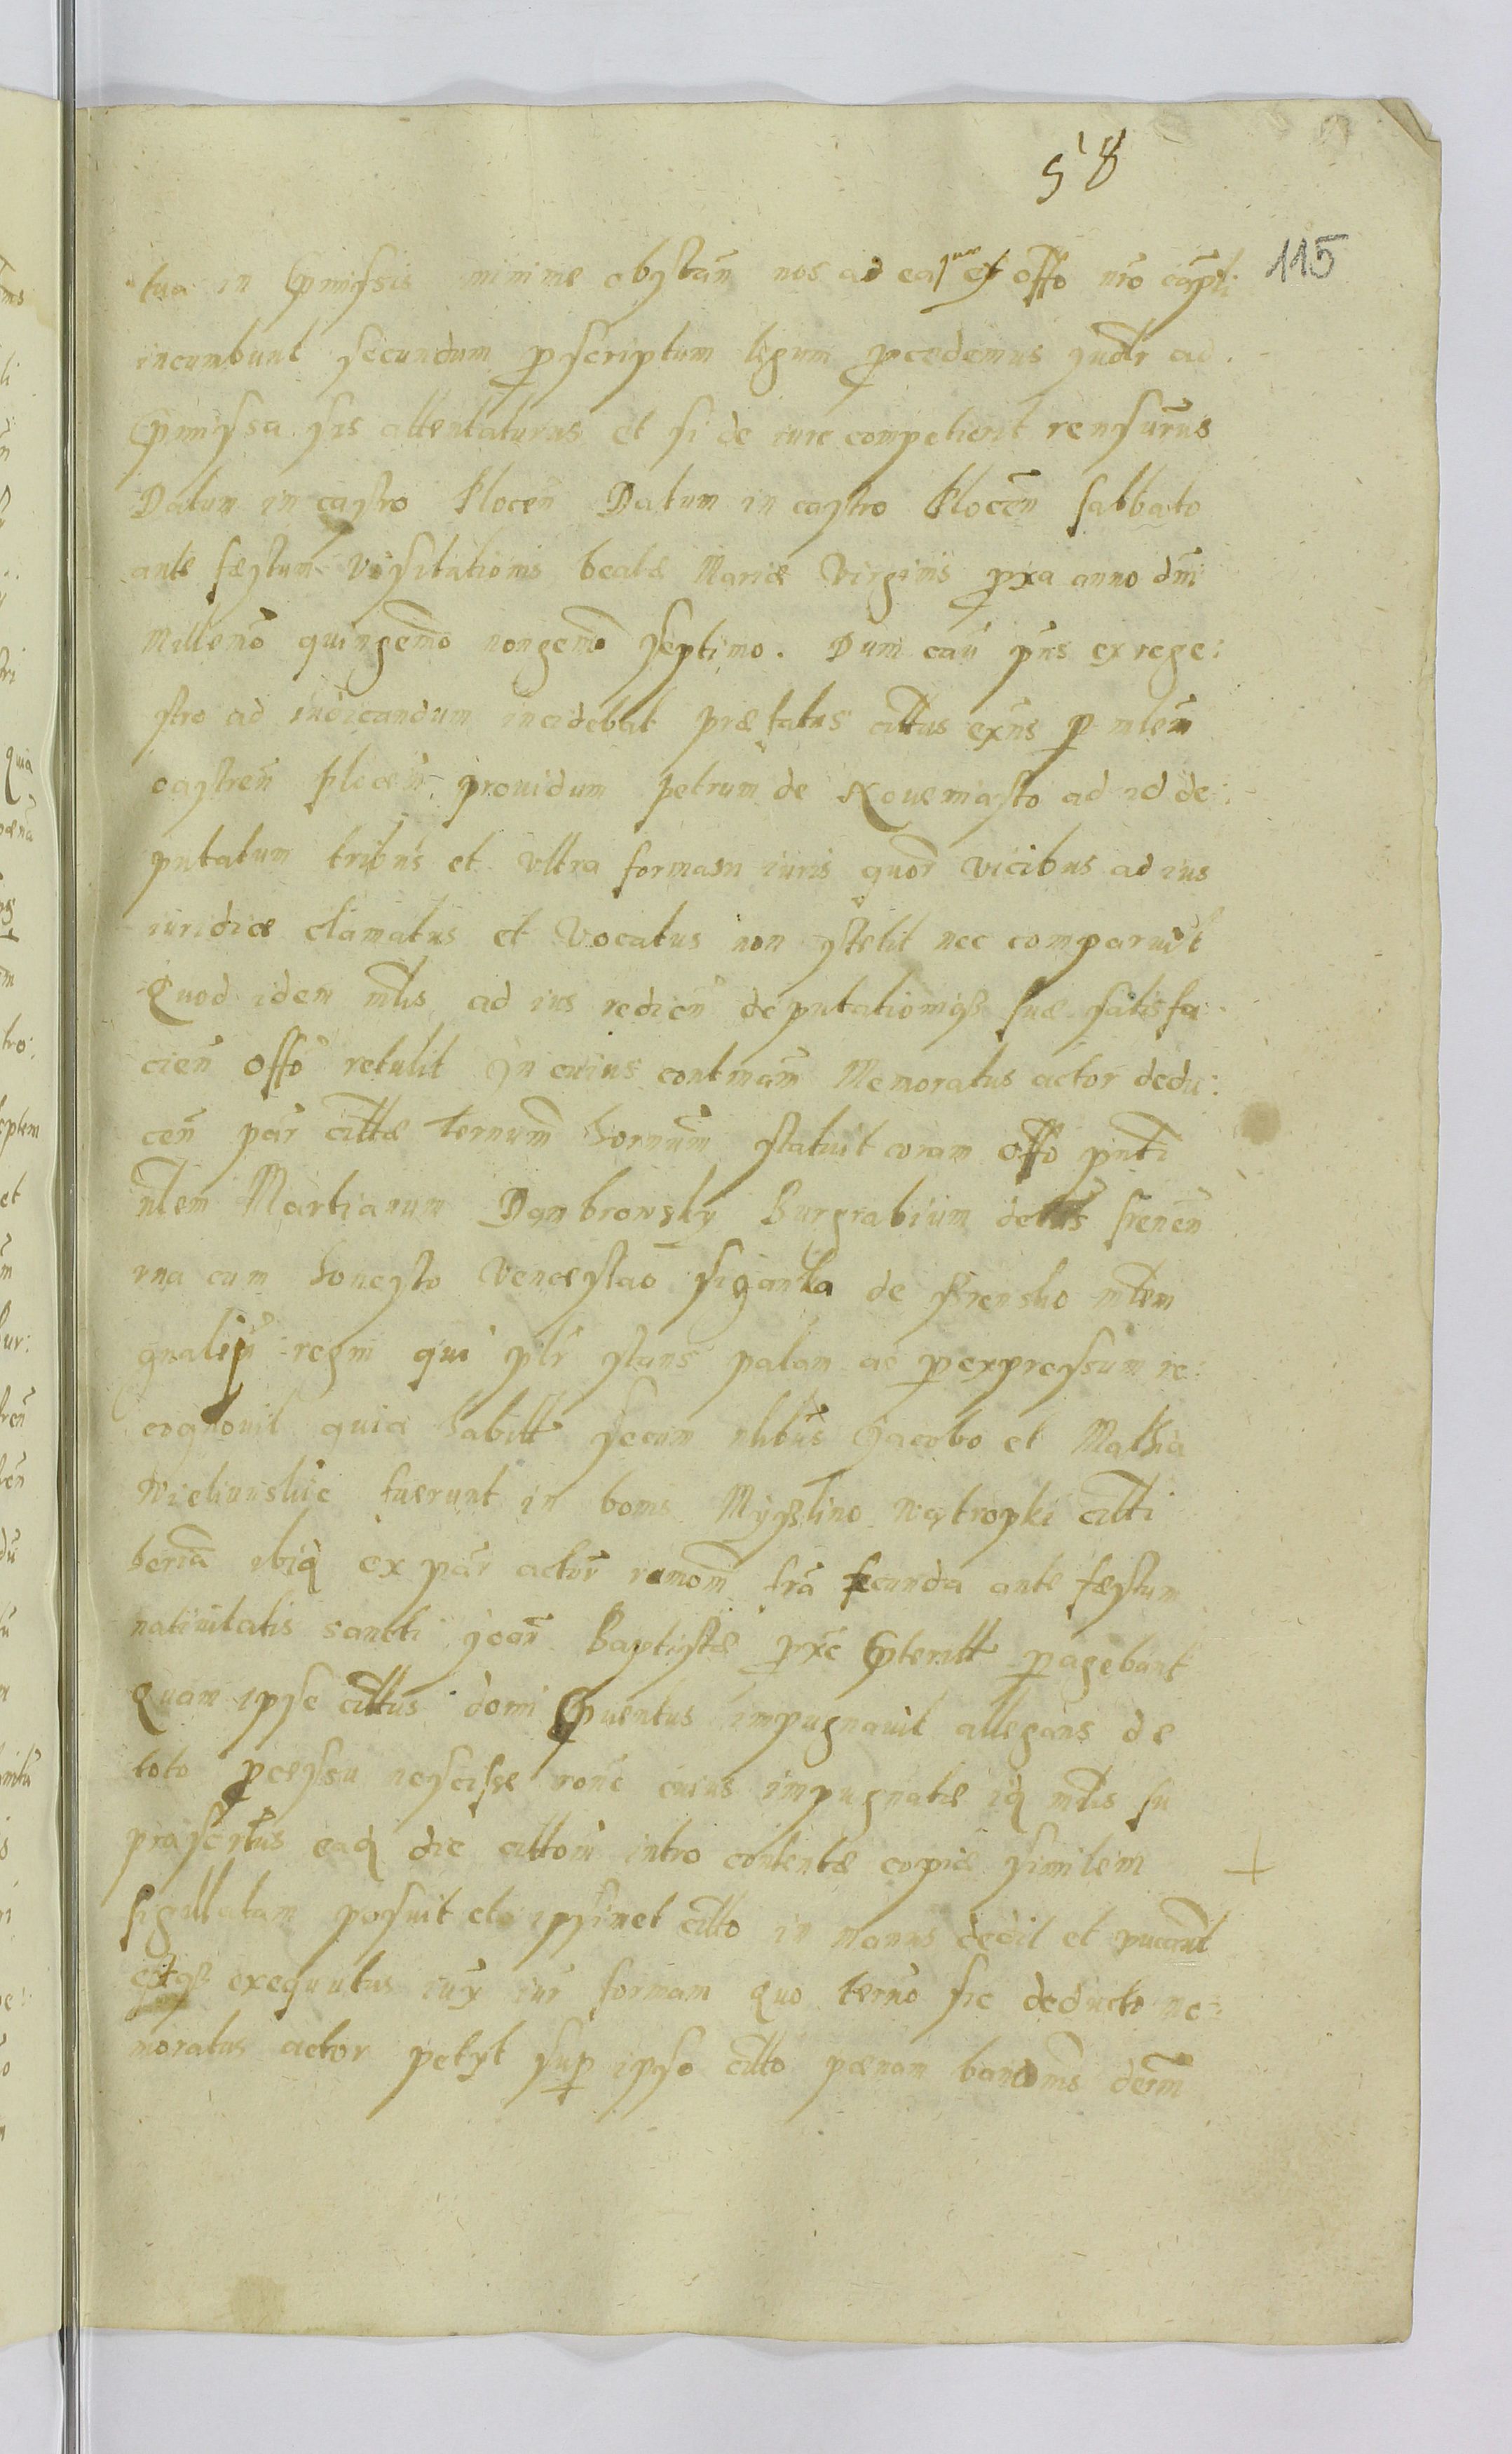 58
115
tua in pmissis minime obstań nos ad ea quæ ex offo nro cāptli
incumbunt secundum pscriptum legum pcedemus ind̄r ad
pmissa sis attentaturus et si de iure competierit rensurus
Datum in castro Plocēn Datum in castro Plocēn sabbato
ante fæstum Visitationis beatæ Mariæ Virginis pxa anno dni
Milleno quingemo nongemo septimo. Dum cau pns ex rege:
stro ad iudicandum incidebat præfatus cittus exns p mlem
castren Plocēn prouidum Petrum de Nouemasto ad id de:
putatum tribus et vltra formam iuris quor vicibus ad ius
iuridice clamatus et vocatus non stetit nec comparuit
Quod idem mlis ad ius redien deputationisq suæ satisfa
cien offo retulit In cuius contmam Memoratus actor dedu:
cen par cittæ ternum hornum statuit coram offo pnti
nlem Martianum Dambrowsky Burgrabium Srenen
vna cum honesto Venceslao siganka de Srensko mlem
gnalem regni qui plr stans palam ac p expressum re:
cognouit quia habitt secum nlibus Jacobo et Mathia
Wielinnskije fuerunt in bonis Myslino Watropki citti
ibiq ex par actor fra secunda ante fæstum
natiuitatis sancti Joan Baptistæ pxe pteritt pagebant
Quam ipse cittus domi puentus impugnauit allegans de
toto pcessu nescisse rone cuius impugnatæ iq mlis su
prascrtus eaq die cittoni intro contentæ copiæ similem
sigillatam posuit et ipsimet citto in manus dedit et
exequutus iux iur formam Quo terno sic deducto me:
moratus actor petyt sup ipso citto pœnam bannonis